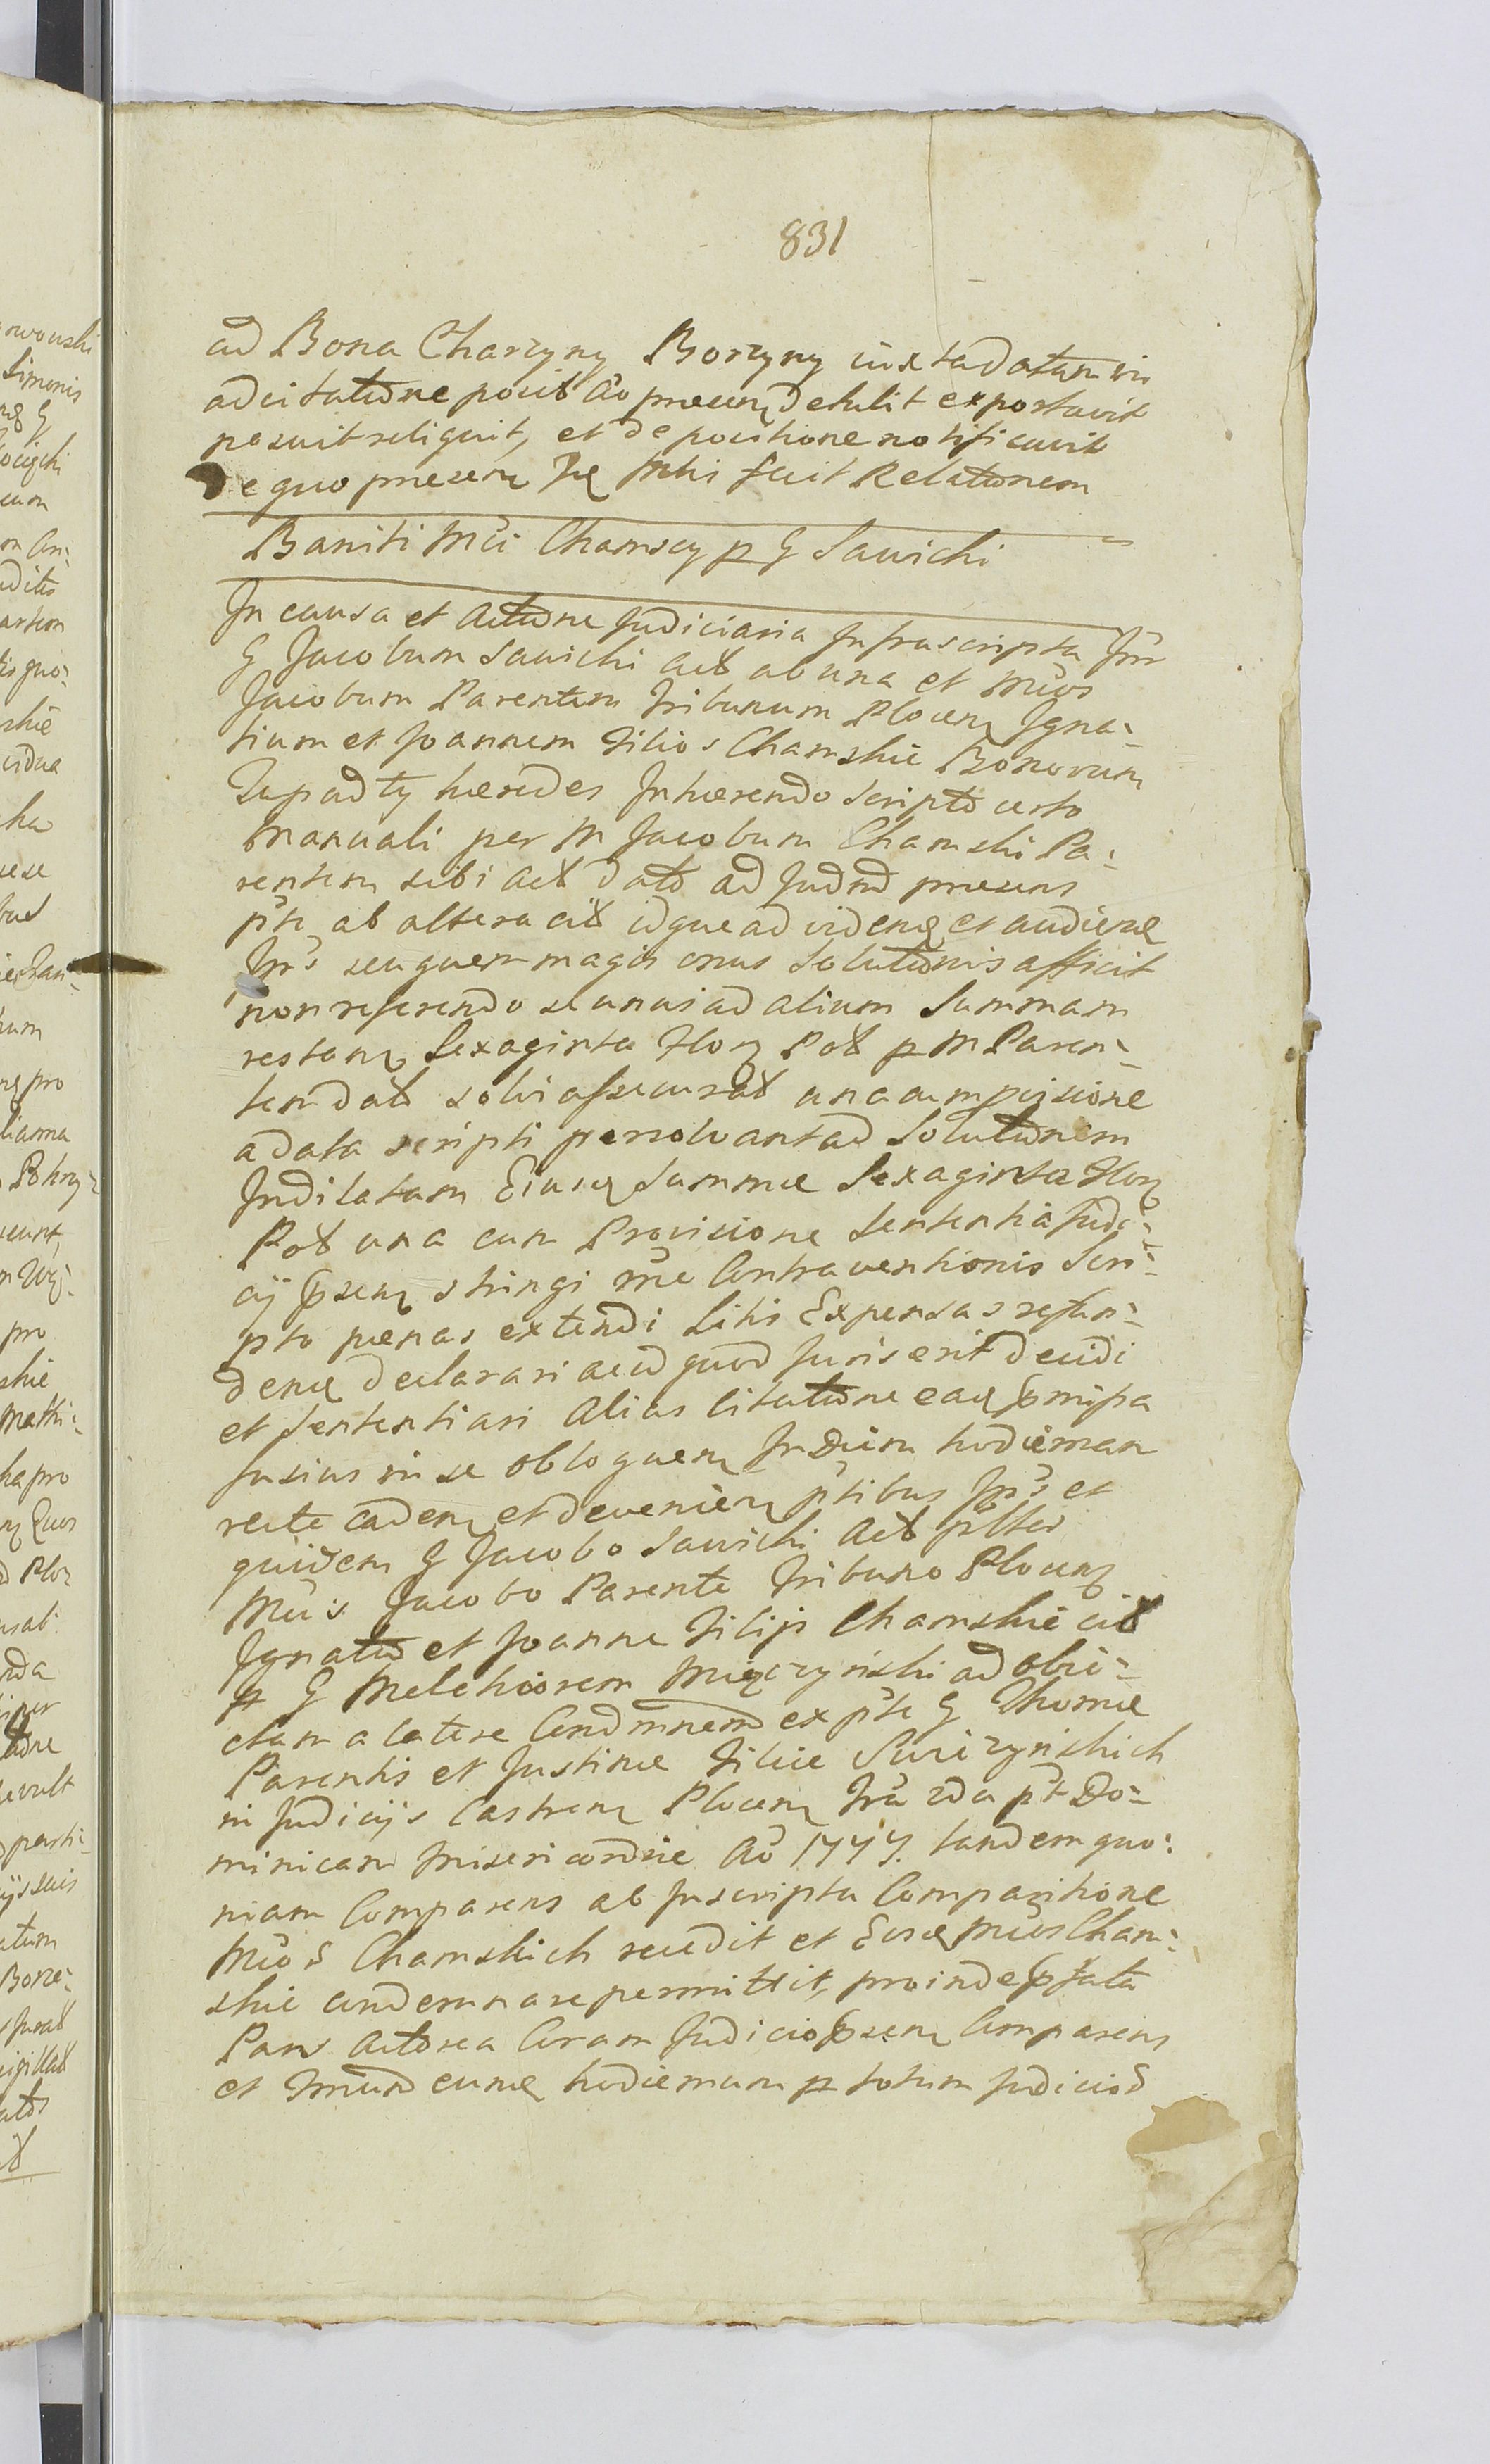 831
ad Bona Charzyny Borzyny iuxta datam in
ad citatione posit Ao praesen detulit exportavit
posuit reliquit, et de positione notificavit
De quo praesens Je Mti fecit Relationem
Baniti Mci Chamscy p G Sawicki
In causa et Actione Judiciaria Infrascripta Inr
G Jacobum Sawicki Act ab una et Mcos
Jacobum Parentem Tribunum Plocen Igna-
tium et Joannem Filios Chamskie Bonorum
haeredes Inhaerendo Scripto certo
Manuali per M Jacobum Chamski Pa-
rentem sibi Act dato ad Judm praesens
pte ab altera cit idque ad viden et audien
Ips seu quem magis onus Solutionis afficit
non referendo se unus ad alium Summam
restan Sexaginta Flor Pol p M Paren-
tem dat solvi assecurat una cum pvisione
a data scripti persolvant ad Solutionem
Indilatam Eiusq Summae Sexaginta Flor
Pol una cum Provisione Sententia Judi-
cij psen stringi rne Contraventionis Scri-
pto paenas extendi Litis Expensas refun-
den declarari ac id quod Juris erit decidi
et Sententiari Alias Citatione eaq pmissa
fusius in se obloquen In Diem hodiernam
recte caden et devenien ptibus Ips et
quidem G Jacobo Sawicki Act plter
Mcis Jacobo Parente Tribuno Plocen
Ignatio et Joanne Filijs Chamskie cit
p G Melchiorem Mięczyński ad obie-
ctam a latere Condmnem ex pte G Thomae
Parentis et Justinae Filiae
in Judicijs Castren Plocen fra 2da pt Do-
minicam Misericordiae Ao 1747. tandem quo-
niam Comparens ab Inscripta Comparitione
Mcos Chamskich recedit et Eosq Mcos Cham-
skie condemnare permittit, proinde pfata
Pars Actorea Coram Judicio psen Comparens
et Tmnum eumq hodiernum p totum Judicios